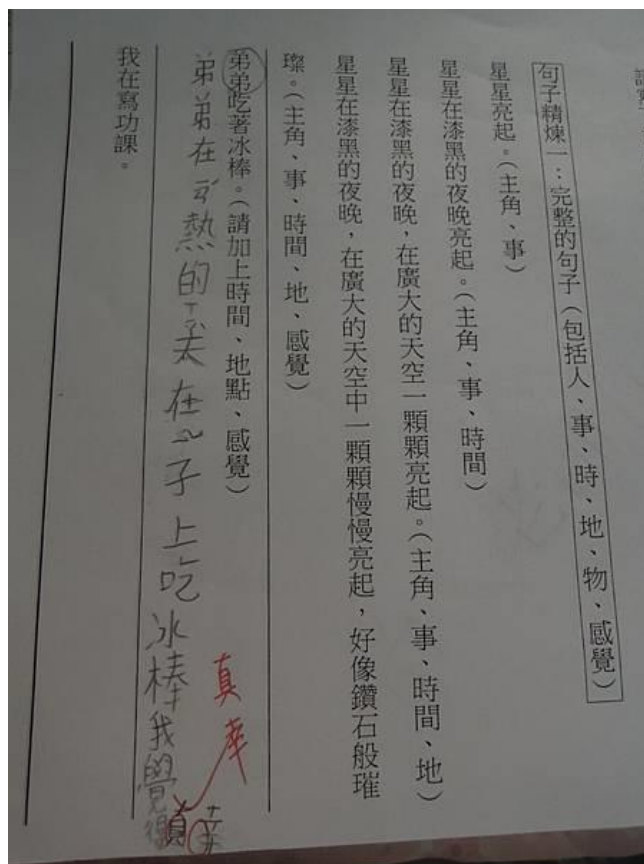 句子精煉一：完整的句子（包括人、事、時、地、物、感覺）
星星亮起。（主角、事）
星星在漆黑的夜晚亮起。（主角、事、時間）
星星在漆黑的夜晚，在廣大的天空一顆顆亮起。（主角、事、時間、地）
星星在漆黑的夜晚，在廣大的天空中一顆顆慢慢亮起，好像鑽石般璀
璨。（主角、事、時間、地、感覺）
弟弟吃著冰棒。（請加上時間、地點、感覺）
弟弟在ㄧㄢˊ熱的ㄒㄧㄚˋ天在ㄧˇ子上吃冰棒我覺得真幸
真幸
我在寫功課。